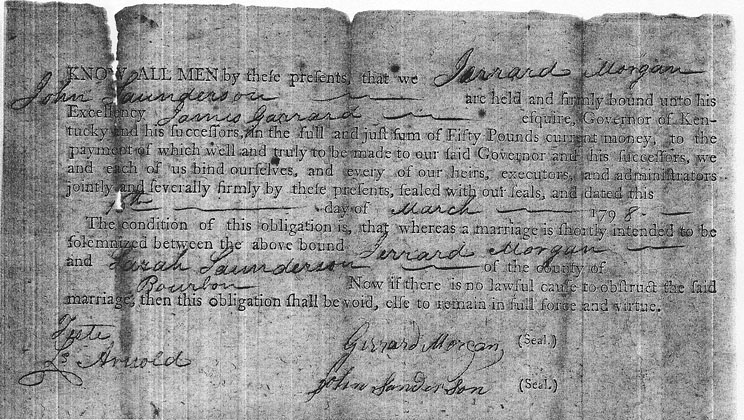 KNOW ALL MEN by theſe preſents, that we Jerrard Morgan
John Saunderson are held and firmly bound unto his
Excellency James Garrard eſquire, Governor of Ken-
tucky and his ſucceſſors, in the full and juſt ſum of Fifty Pounds current money, to the
payment of which well and truly to be made to our ſaid Governor and his ſucceſſors, we
and each of us bind ourſelves, and every of our heirs, executors, and adminiſtrators
jointly and ſeverally firmly by theſe preſents, ſealed with our ſeals, and dated this
day of March 1798
The condition of this obligation is, that whereas a marriage is ſhortly intended to be
ſolemnized between the above bound Jerrard Morgan
and Sarah Saunderson of the county of
Bourbon Now if there is no lawful cauſe to obſtruct the ſaid
marriage, then this obligation ſhall be void, elſe to remain in full force and virtue.
Teste
Arnold
Gerrard Morgan (Seal.)
John Sanderson (Seal.)